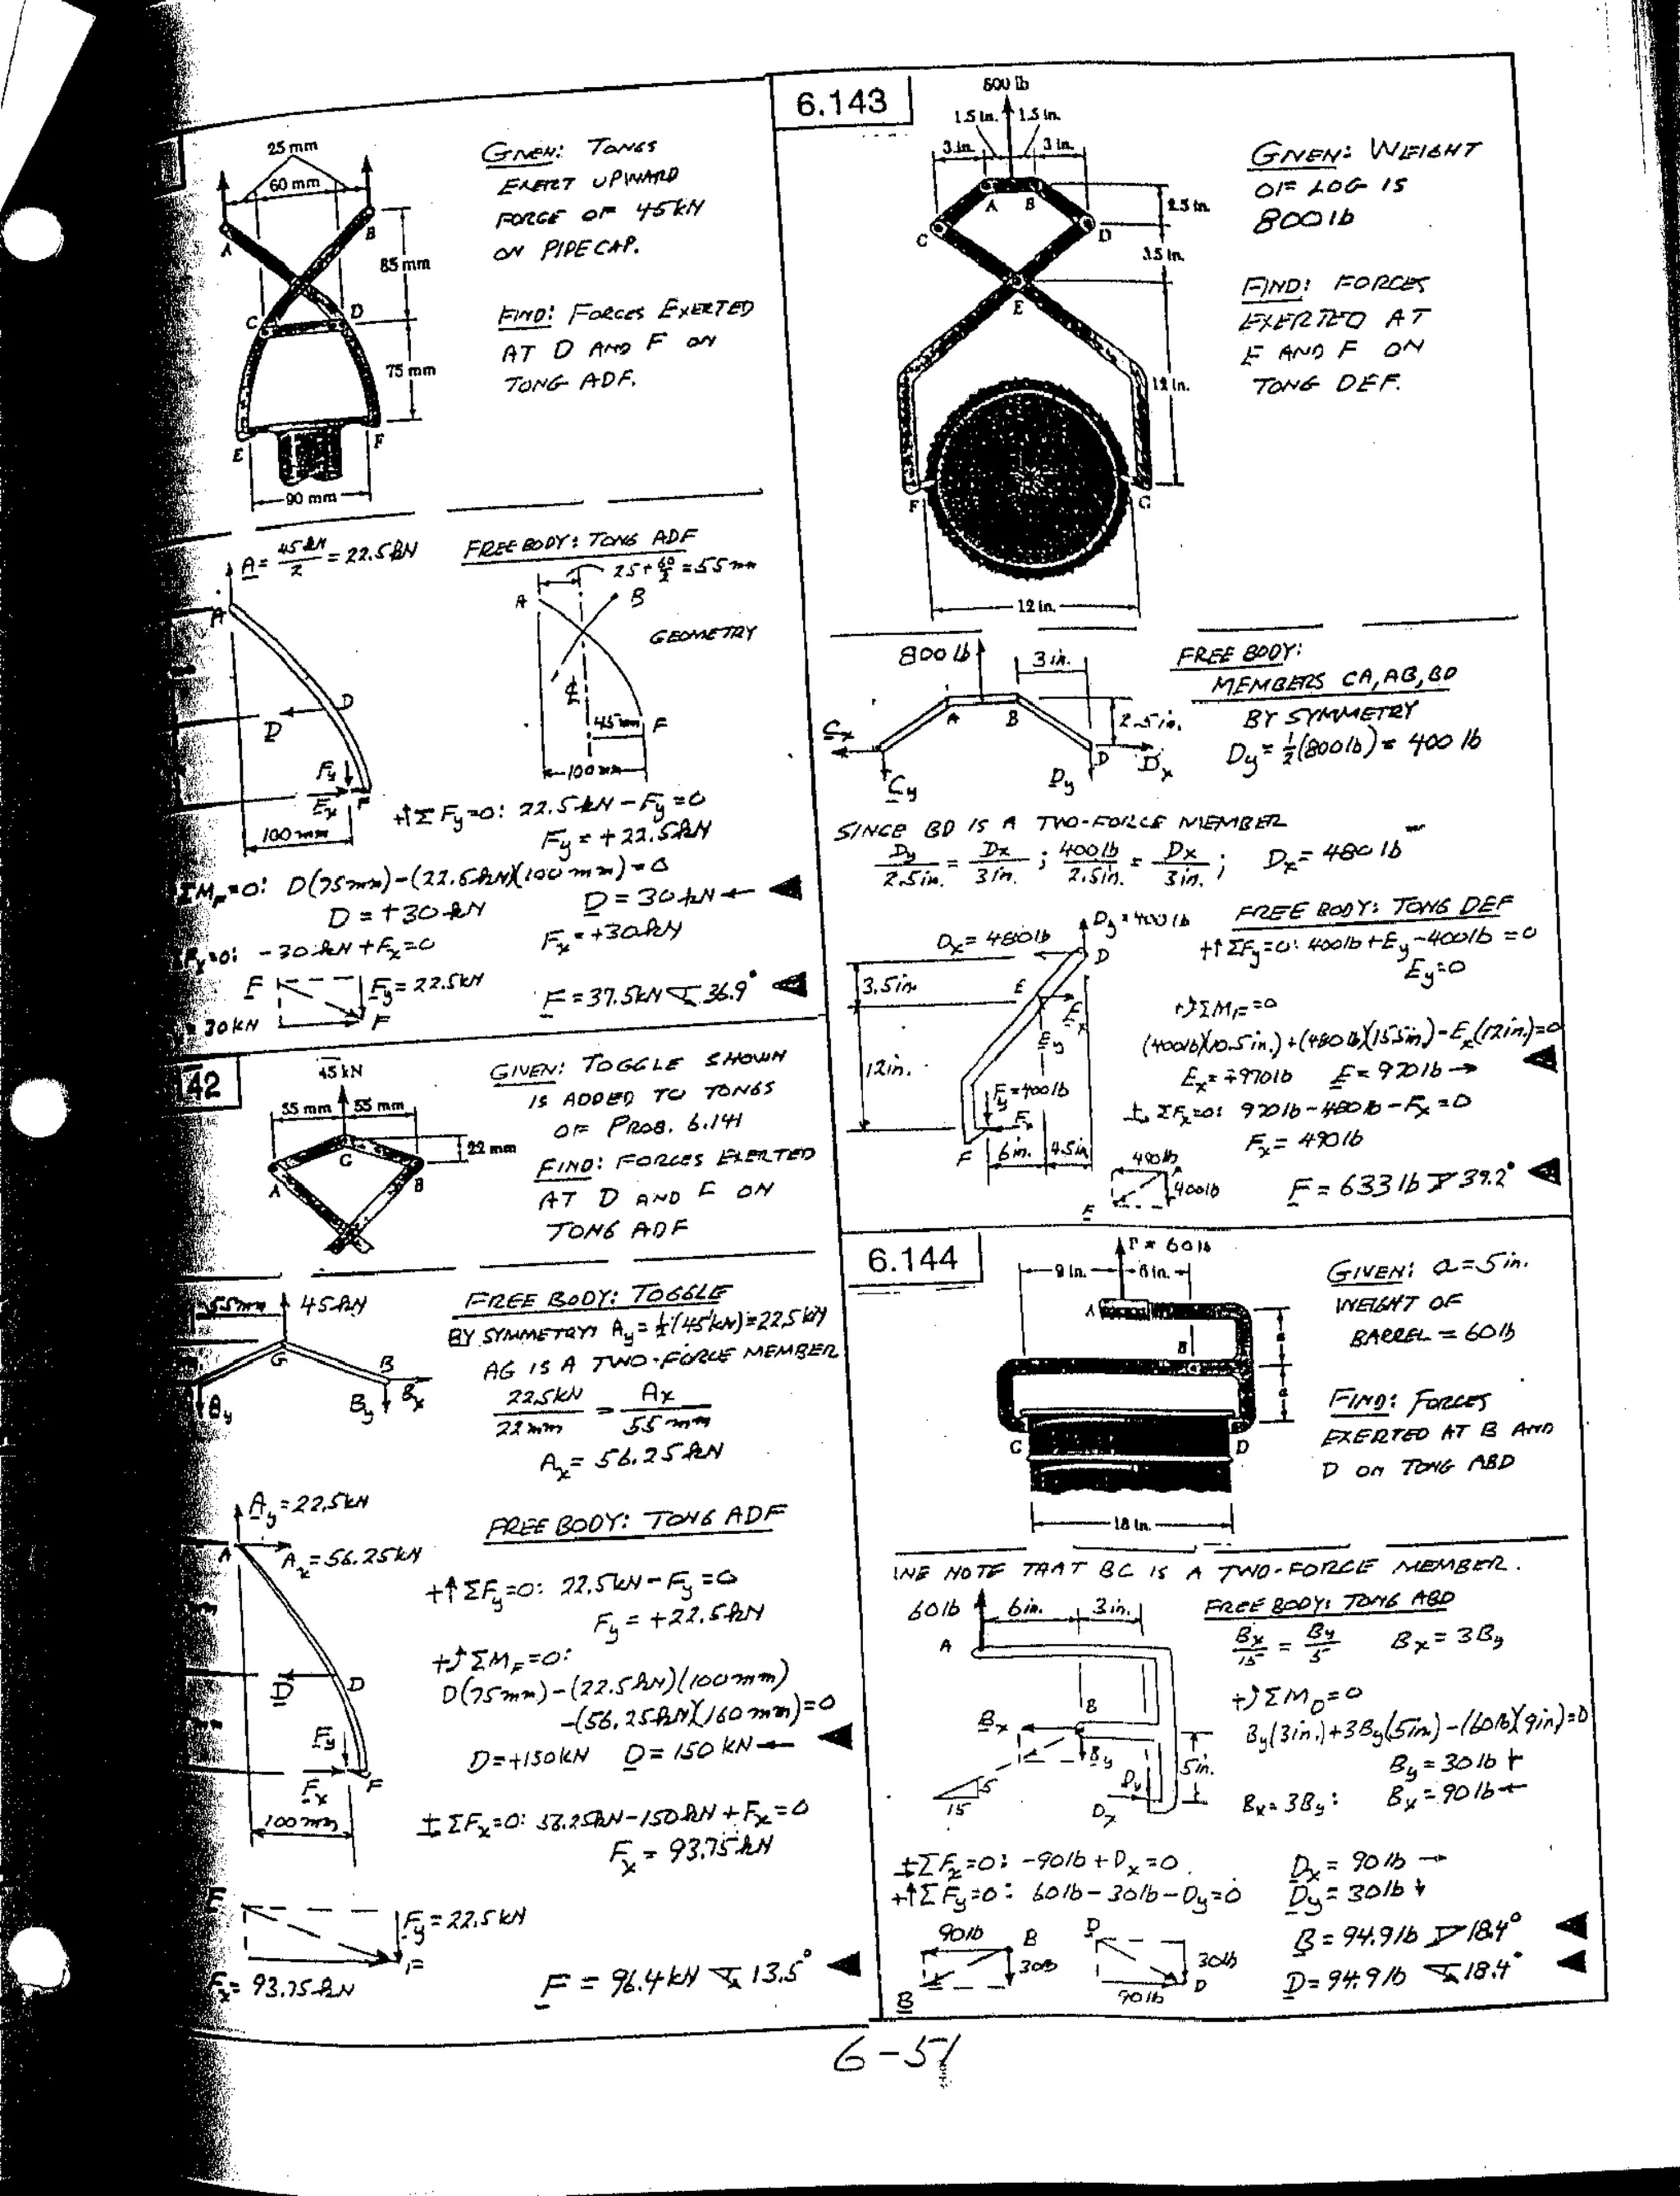 25 mm
60 mm
A
B
85 mm
C
D
75 mm
E
F
90 mm
GIVEN: TONGS
EXERT UPWARD
FORCE OF 45 kN
ON PIPE CAP.
FIND: FORCES EXERTED
AT D AND F ON
TONG ADF.
A = 45 kN / 2 = 22.5 kN
FREE BODY: TONG ADF
25 + 60/2 = 55 mm
A
B
GEOMETRY
℄
45 mm
F
100 mm
A
D
D
Fy
Fx
F
100 mm
+↑ΣFy=0: 22.5 kN − Fy = 0
Fy = +22.5 kN
ΣM_F=0: D(75mm) − (22.5kN)(100mm) = 0
D = +30 kN D = 30 kN ←
ΣFx=0: −30 kN + Fx = 0 Fx = +30 kN
F Fy = 22.5 kN
= 30 kN F
F = 37.5 kN 36.9°
42
45 kN
55 mm 55 mm
22 mm
G
A
B
GIVEN: TOGGLE SHOWN
IS ADDED TO TONGS
OF PROB. 6.141
FIND: FORCES EXERTED
AT D AND F ON
TONG ADF
55mm 45 kN
G
B
Ay
By Bx
FREE BODY: TOGGLE
BY SYMMETRY: Ay = ½(45 kN) = 22.5 kN
AG IS A TWO-FORCE MEMBER
22.5kN / 22mm = Ax / 55 mm
Ax = 56.25 kN
Ay = 22.5 kN
A
Ax = 56.25 kN
D
D
Fy
Fx
F
100 mm
FREE BODY: TONG ADF
+↑ΣFy=0: 22.5 kN − Fy = 0
Fy = +22.5 kN
+ΣM_F=0:
D(75mm) − (22.5kN)(100mm)
−(56.25kN)(160mm) = 0
D = +150 kN D = 150 kN ←
ΣFx=0: 56.25kN − 150kN + Fx = 0
Fx = 93.75 kN
F
Fy = 22.5 kN
F
Fx = 93.75 kN
F = 96.4 kN 13.5°
6.143
800 lb
1.5 in. 1.5 in.
3 in. 3 in.
A B
2.5 in.
C D
3.5 in.
E
12 in.
F G
12 in.
GIVEN: WEIGHT
OF LOG IS
800 lb
FIND: FORCES
EXERTED AT
E AND F ON
TONG DEF.
800 lb 3 in.
A B
2.5 in.
Cx
Cy
D
Dy
Dx
FREE BODY:
MEMBERS CA, AB, BD
BY SYMMETRY
Dy = ½(800 lb) = 400 lb
SINCE BD IS A TWO-FORCE MEMBER
Dy / 2.5in. = Dx / 3in. ; 400 lb / 2.5in. = Dx / 3in. ; Dx = 480 lb
Dx = 480 lb Dy = 400 lb
D
3.5 in.
E
Ex
Ey
12 in.
Fy = 400 lb
Fx
F
6 in. 4.5 in.
FREE BODY: TONG DEF
+↑ΣFy=0: 400 lb + Ey − 400 lb = 0
Ey = 0
+ΣM_F=0
(400 lb)(10.5 in.) + (480 lb)(15.5 in.) − Ex(12 in.) = 0
Ex = +970 lb E = 970 lb →
ΣFx=0: 970 lb − 480 lb − Fx = 0
Fx = 490 lb
490 lb
400 lb
F
F = 633 lb 39.2°
6.144
P = 60 lb
9 in. 6 in.
A
B
a
a
C
D
18 in.
GIVEN: a = 5 in.
WEIGHT OF
BARREL = 60 lb
FIND: FORCES
EXERTED AT B AND
D ON TONG ABD
WE NOTE THAT BC IS A TWO-FORCE MEMBER.
60 lb 6 in. 3 in.
A
B
Bx
By
5
15
5 in.
Dy
Dx
FREE BODY: TONG ABD
Bx / 15 = By / 5 Bx = 3By
+ΣM_D=0
By(3in.) + 3By(5in.) − (60lb)(9in.) = 0
By = 30 lb ↓
Bx = 3By: Bx = 90 lb ←
ΣFx=0: −90 lb + Dx = 0 Dx = 90 lb →
+↑ΣFy=0: 60 lb − 30 lb − Dy = 0 Dy = 30 lb ↓
90 lb B
30 lb
B
D
30 lb
90 lb D
B = 94.9 lb 18.4°
D = 94.9 lb 18.4°
6-51